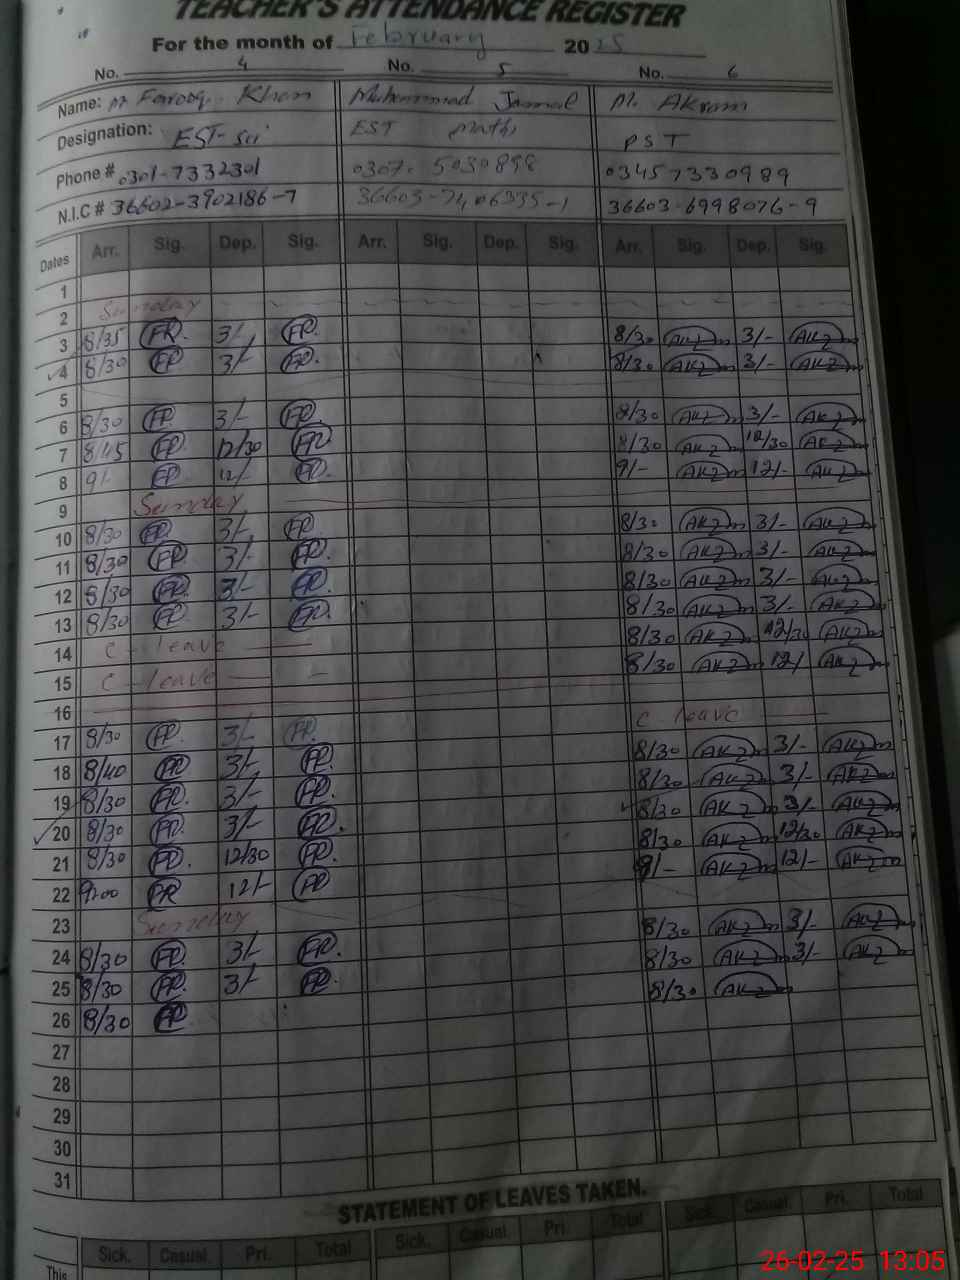 TEACHER'S ATTENDANCE REGISTER
For the month of February 2025
No. 4 No. 5 No. 6
Name: M Farooq Khan Muhammad Jamal M. Akram
Designation: EST-Sci EST Maths PST
Phone # 0301-7332301 0307-5030898 03457330989
N.I.C # 36602-3902186-7 36603-6998076-9
Dates Arr. Sig. Dep. Sig. Arr. Sig. Dep. Sig. Arr. Sig. Dep. Sig.
1
2 Sunday
3 8/35 FR. 3/- FR. 8/30 3/-
4 8/30 FR 3/- FR. 8/30 3/-
5
6 8/30 FR 3/- FR 8/30 3/-
7 8/45 FR 12/30 FR 8/30 12/30
8 9/- FR 12/- FR. 9/- 12/-
9 Sunday
10 8/30 FR. 3/- FR 8/30 3/-
11 8/30 FR 3/- FR. 8/30 3/-
12 8/30 FR 3/- FR. 8/30 3/-
13 8/30 FR. 3/- FR. 8/30 3/-
14 C-leave 8/30 12/30
15 C-leave 8/30 12/-
16
17 8/30 FR. 3/- FR. C-leave
18 8/40 FR 3/- FR. 8/30 3/-
19 8/30 FR. 3/- FR. 8/30 3/-
20 8/30 FR. 3/- FR. 8/30 3/-
21 8/30 FR. 12/30 FR. 8/30 12/30
22 9:00 FR 12/- FR 9/- 12/-
23 Sunday
24 8/30 FR. 3/- FR. 8/30 3/-
25 8/30 FR. 3/- FR. 8/30 3/-
26 8/30 FR. 8/30
27
28
29
30
31
STATEMENT OF LEAVES TAKEN.
Sick. Casual. Pri. Total Sick. Casual. Pri. Total Sick. Casual. Pri. Total
This
26-02-25 13:05